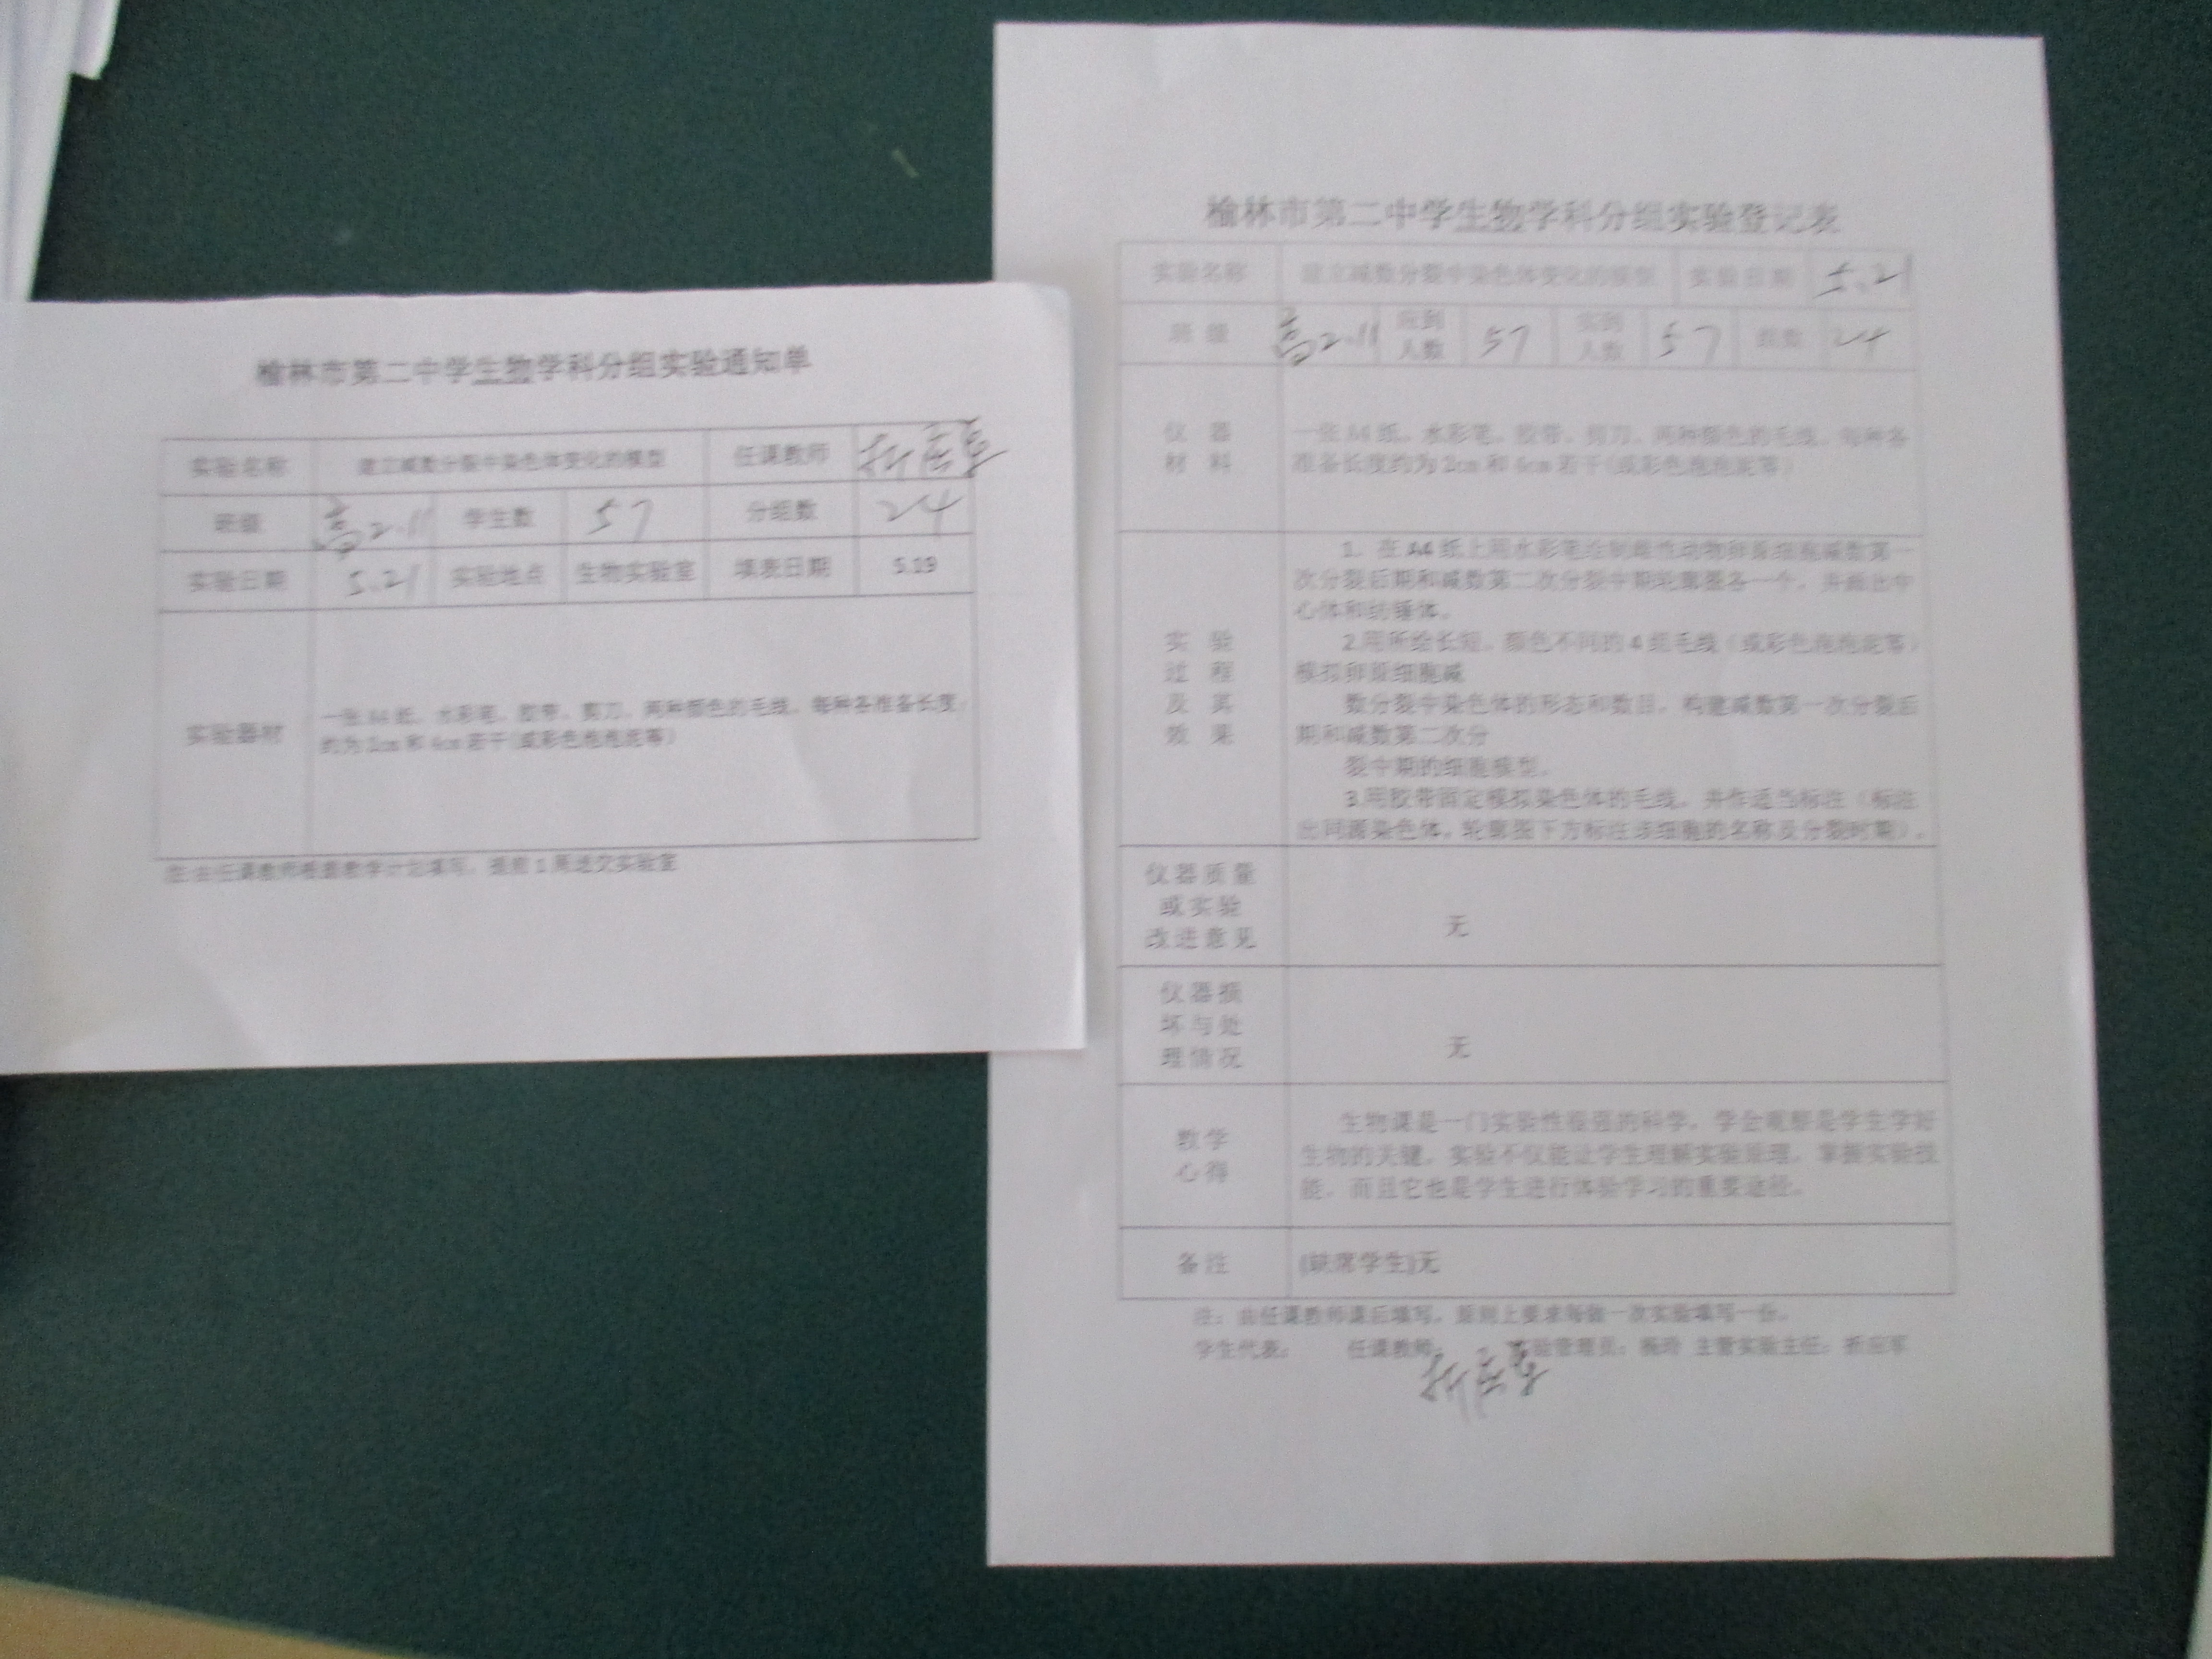 榆林市第二中学生物学科分组实验通知单
实验名称 建立减数分裂中染色体变化的模型 任课教师
班级 高2.11 学生数 57 分组数 24
实验日期 5.21 实验地点 生物实验室 填表日期 5.19
实验器材 一张A4纸、水彩笔、胶带、剪刀、两种颜色的毛线，每种各准备长度
约为2cm和4cm若干(或彩色泡泡泥等)
注:由任课教师根据教学计划填写，提前1周送交实验室
榆林市第二中学生物学科分组实验登记表
实验名称 建立减数分裂中染色体变化的模型 实验日期 5.21
班级 高2.11 应到人数 57 实到人数 57 组数 24
仪器
材料
一张A4纸、水彩笔、胶带、剪刀、两种颜色的毛线，每种各
准备长度约为2cm和4cm若干(或彩色泡泡泥等)
实验
过程
及其
效果
1．在A4纸上用水彩笔绘制雌性动物卵原细胞减数第一
次分裂后期和减数第二次分裂中期轮廓图各一个，并画出中
心体和纺锤体。
2.用所给长短、颜色不同的4组毛线（或彩色泡泡泥等）
模拟卵原细胞减
数分裂中染色体的形态和数目，构建减数第一次分裂后
期和减数第二次分
裂中期的细胞模型。
3.用胶带固定模拟染色体的毛线，并作适当标注（标注
出同源染色体，轮廓图下方标注该细胞的名称及分裂时期）。
仪器质量
或实验
改进意见
无
仪器损
坏与处
理情况
无
教学
心得
生物课是一门实验性很强的科学，学会观察是学生学好
生物的关键，实验不仅能让学生理解实验原理，掌握实验技
能，而且它也是学生进行体验学习的重要途径。
备注 (缺席学生)无
注：由任课教师课后填写，原则上要求每做一次实验填写一份。
学生代表： 任课教师： 验管理员： 主管实验主任：